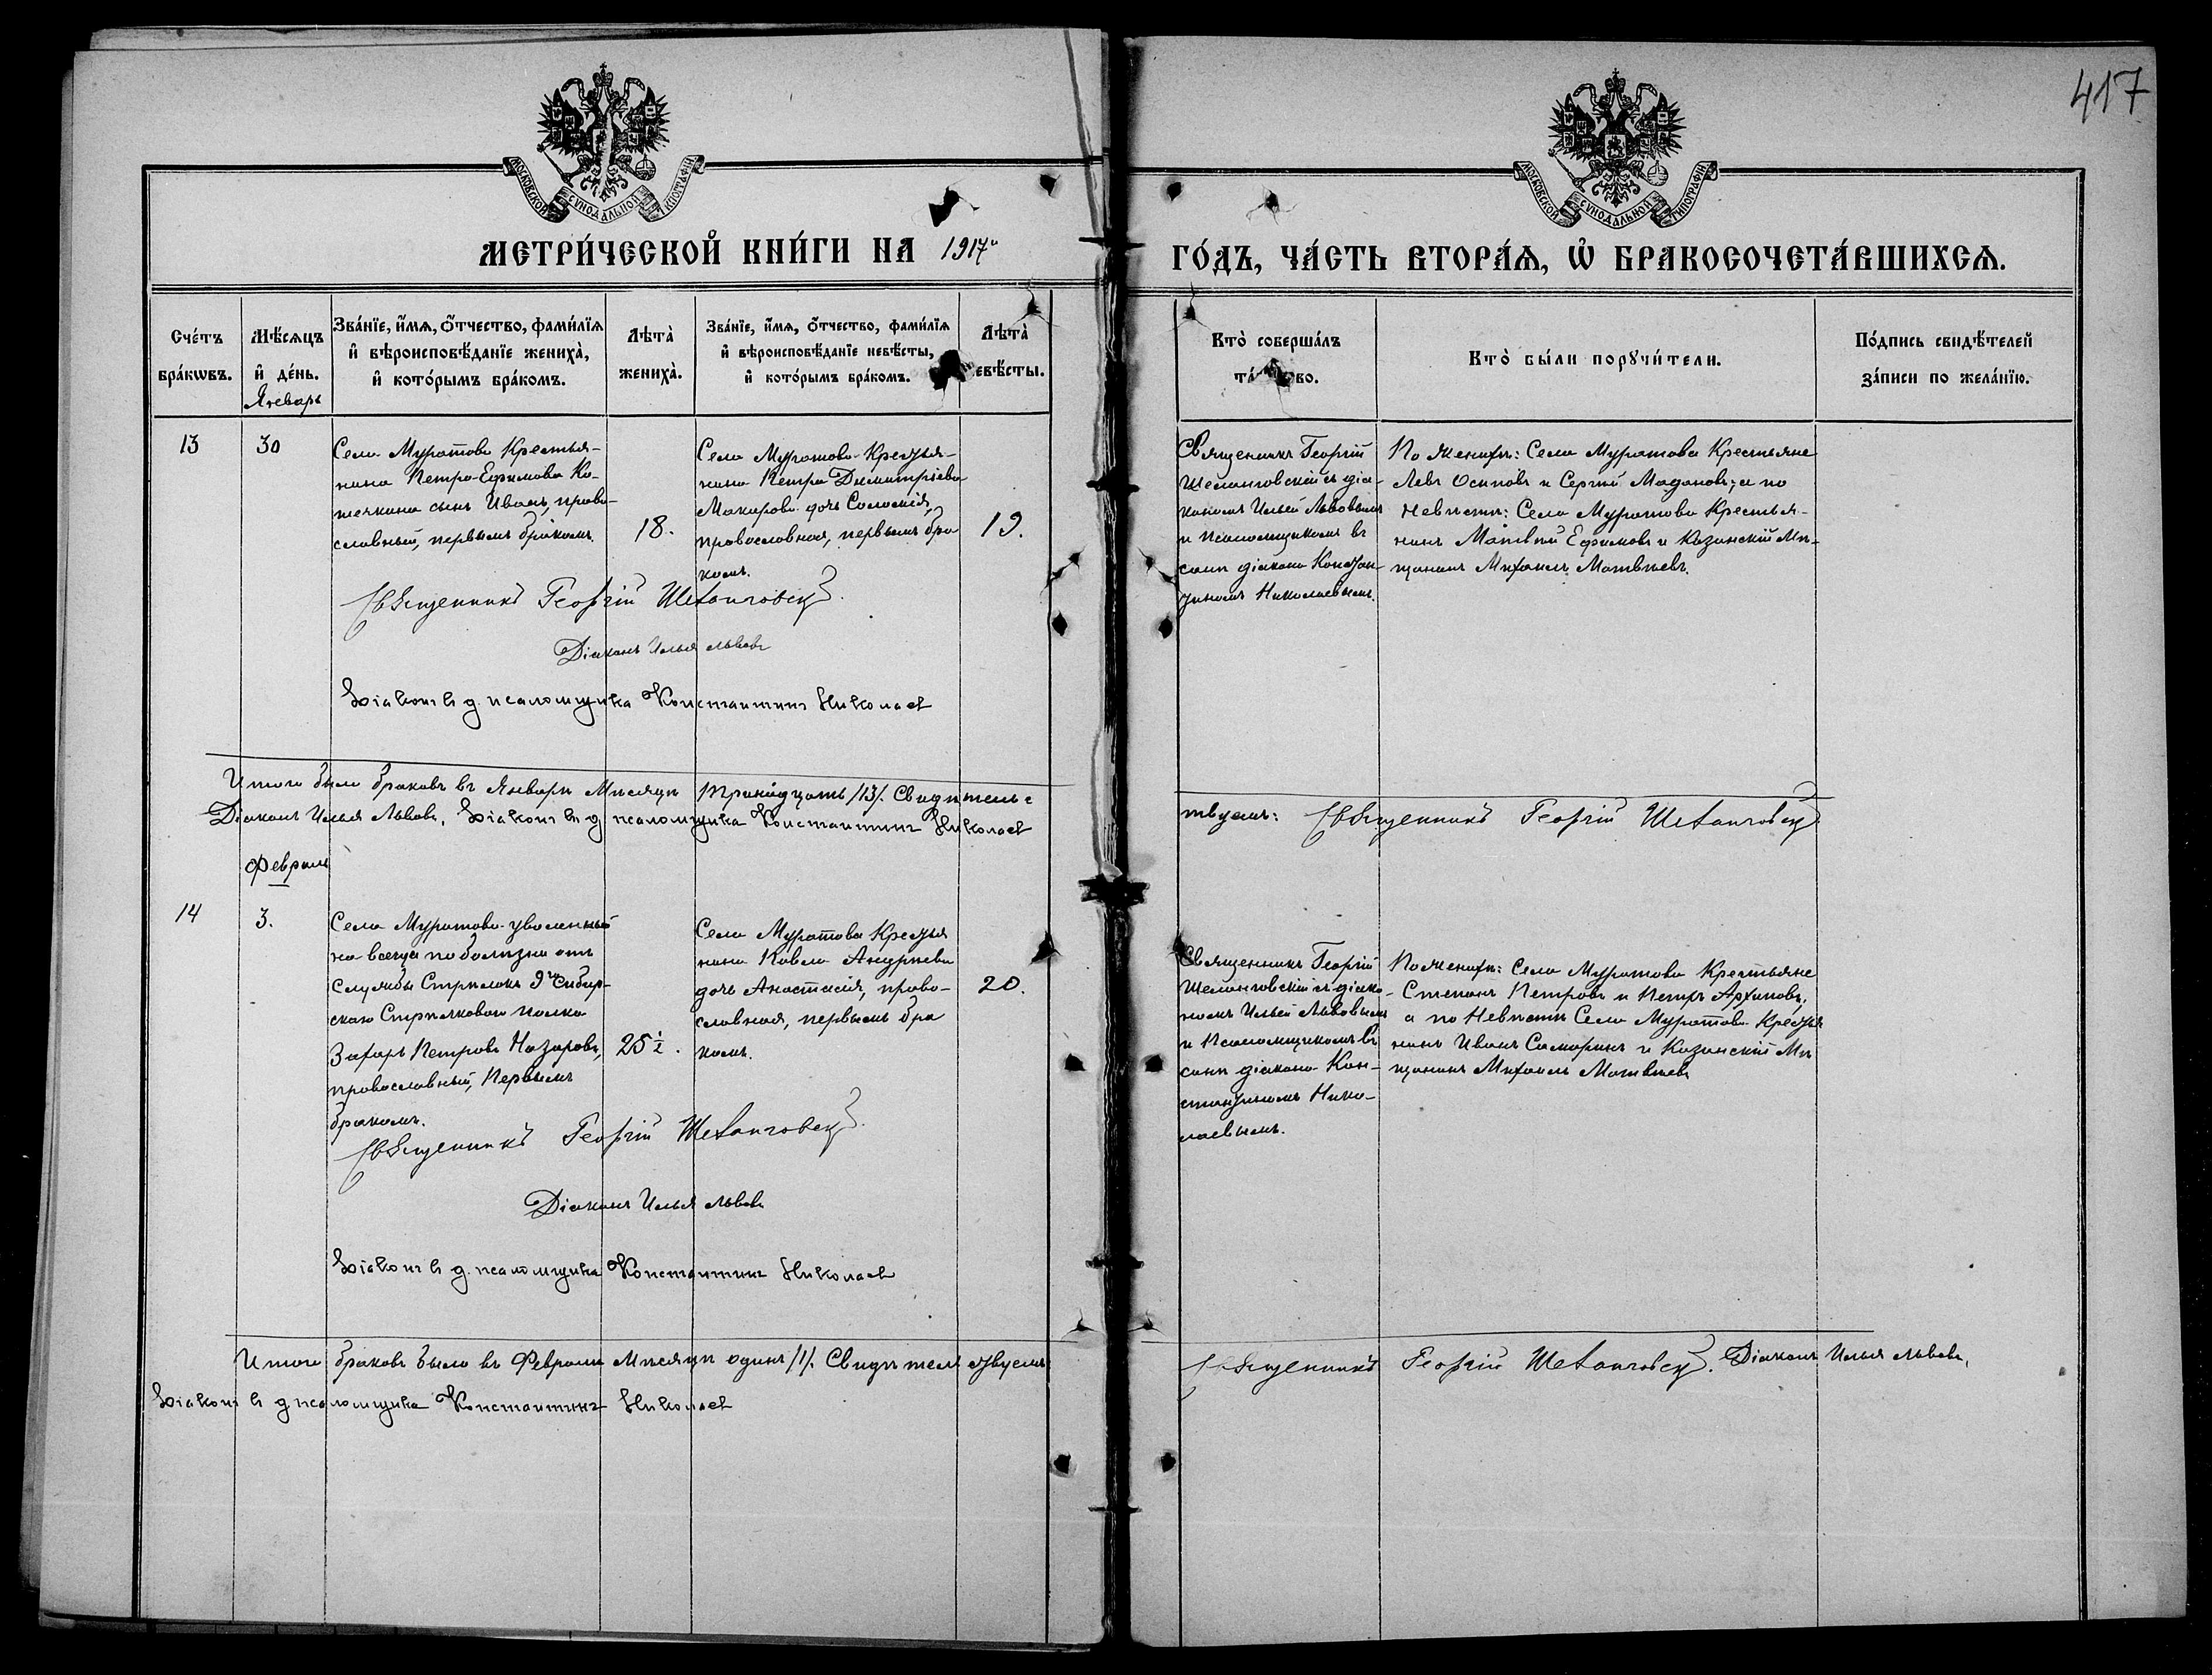 417
МОСКОВСКОЙ СѴНОДАЛЬНОЙ ТИПОГРАФІИ
МОСКОВСКОЙ СѴНОДАЛЬНОЙ ТИПОГРАФІИ
МЕТРИ́ЧЕСКОЙ КНИ́ГИ НА 1917й
ГО́ДЪ, ЧА́СТЬ ВТОРА́Ѧ, Ѡ҆ БРАКОСОЧЕТА́ВШИХСѦ.
Сче́тъ
бра́кѡвъ.
Мѣ́сѧцъ
и҆ де́нь.
Январь
Зва́нїе, и҆́мѧ, ѻ҆́тчество, фами́лїѧ
и҆ вѣроисповѣ́данїе жениха̀,
и҆ кото́рымъ бра́комъ.
Лѣта̀
жениха̀.
Зва́нїе, и҆́мѧ, ѻ҆́тчество, фами́лїѧ
и҆ вѣроисповѣ́данїе невѣ́сты,
и҆ кото́рымъ бра́комъ.
Лѣта̀
евѣ́сты.
Кто̀ соверша́лъ
та́ во.
Кто̀ бы́ли порꙋчи́тели.
По́дпись свидѣ́телей
за́писи по жела́нїю.
13
30
Села Муратова Крестья-
нина Петра Ефимова Ко-
течкина сынъ Иванъ, право-
славный, первымъ бракомъ.
18.
Села Муратова Крестья-
нина Петра Димитріева
Макарова дочь Соломія,
православная, первымъ бра
комъ.
19.
Священникъ Георгій
Шеланговскій съ діа-
кономъ Ильей Львовымъ
и псаломщикомъ въ
санѣ діакона Констан-
тиномъ Николаевымъ.
По женихѣ: Села Муратова Крестьяне
Левъ Осиповъ и Сергѣй Мадановъ; а по
невѣстѣ: Села Муратова Крестья-
нинъ Матвѣй Ефимовъ и Казанскій Мѣ-
щанинъ Михаилъ Матвѣевъ.
Священникъ Георгій Шеланговскій.
Діаконъ Илья Львовъ
Діаконъ в д. псаломщика Константинъ Николаев
Итого было браковъ въ Январѣ Мѣсяцѣ тринадцать /13/. Свидѣтельс
твуемъ: Священникъ Георгій Шеланговскій
Діаконъ Илья Львовъ, Діаконъ в д псаломщика Константинъ Николаев
Февраль
14
3.
Села Муратова уволенный
на всегда по болѣзни отъ
Службы Стрѣлокъ 9го Сибир-
скаго Стрѣлковаго полка
Захаръ Петровъ Назаровъ,
православный, Первымъ
бракомъ.
25 ½.
Села Муратова Крестья
нина Павла Андреева
дочь Анастасія, право-
славная, первымъ бра
комъ.
20.
Священникъ Георгій
Шеланговскій съ діако-
номъ Ильей Львовымъ
и Псаломщикомъ въ
санѣ діакона Кон-
стантиномъ Нико-
лаевымъ.
По женихѣ: Села Муратова Крестьяне
Степанъ Петровъ и Петръ Архиповъ,
а по Невѣстѣ Села Муратова Крестья
нинъ Иванъ Самаринъ и Казанскій Мѣ
щанинъ Михаилъ Матвѣевъ
Священникъ Георгій Шеланговскій.
Діаконъ Илья Львовъ
Діаконъ в д. псаломщика Константинъ Николаев
Итого браковъ было въ Февралѣ Мѣсяцѣ одинъ /1/. Свидѣтельствуемъ
Священникъ Георгій Шеланговскій. Діаконъ Илья Львовъ,
Діаконъ в д псаломщика Константинъ Николаев